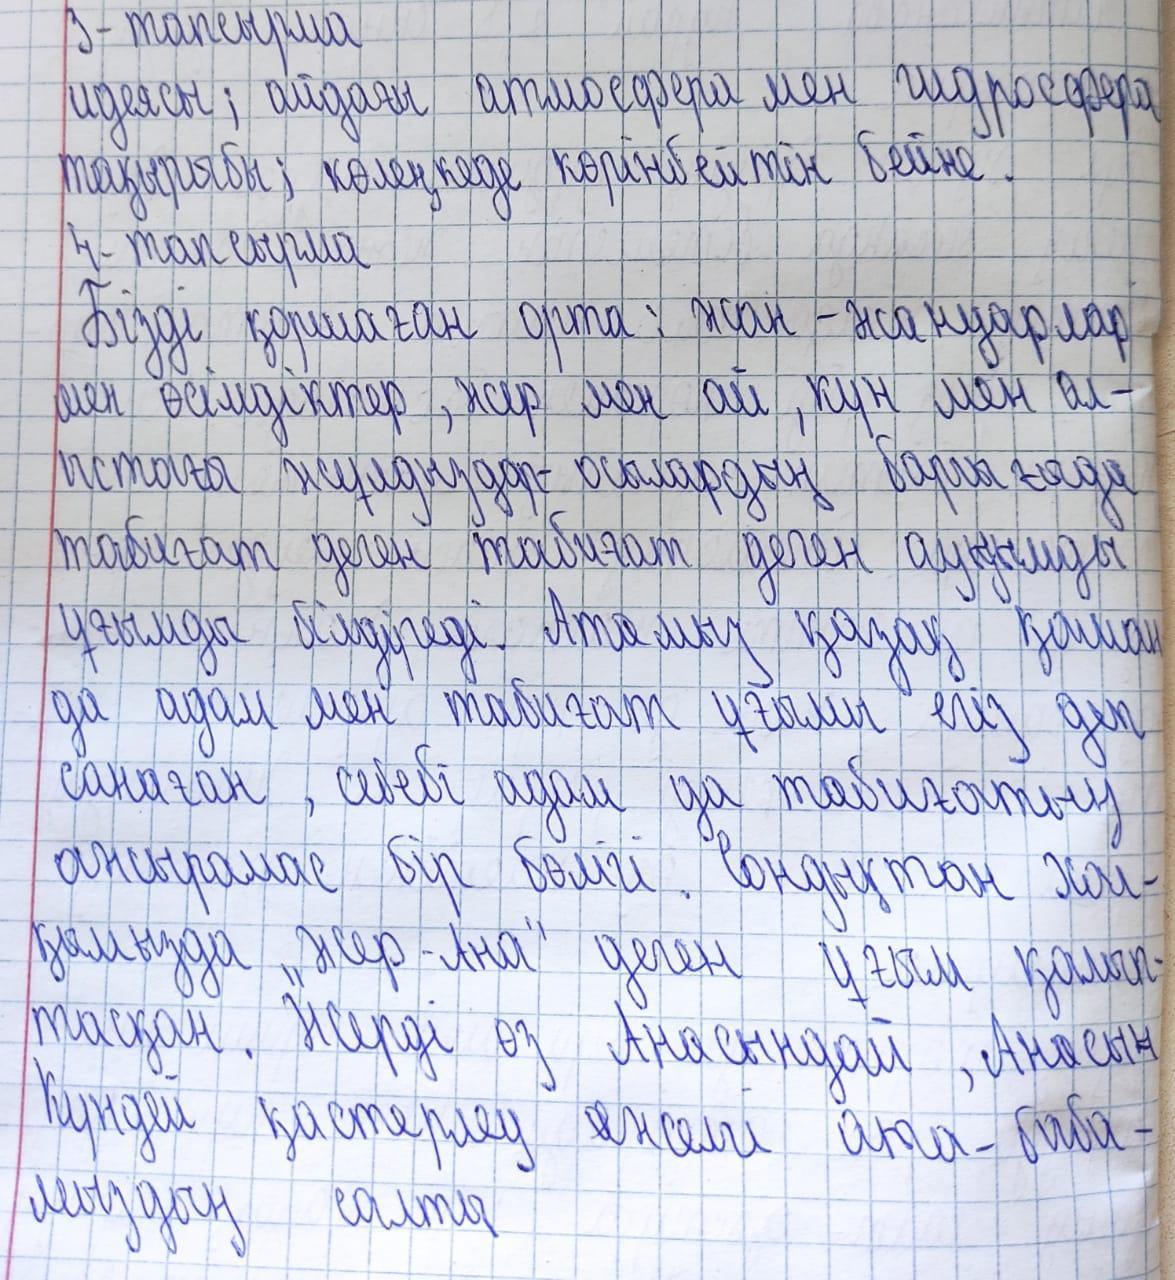 3-тапсырма
идеясы; айдағы атмосфера мен гидросфера
тақырыбы; көлеңкеде көрінбейтін бейне.
4-тапсырма
Бізді қоршаған орта: жан-жануарлар
мен өсімдіктер, жер мен ай, күн мен ал-
ыстағы жұлдыздар-осылардың барлығыда
табиғат деген табиғат деген ауқымды
ұғымды білдіреді. Атамыз қазақ қашан
да адам мен табиғат ұғымы егіз деп
санаған, себебі адам да табиғатың
ажырамас бір бөлігі. Сондықтан хал-
қымызда „Жер-Ана" деген ұғым қалып-
тасқан. Жерді өз Анасындай, Анасын
Күндей қастерлеу ежелгі ата-баба-
мыздың салты